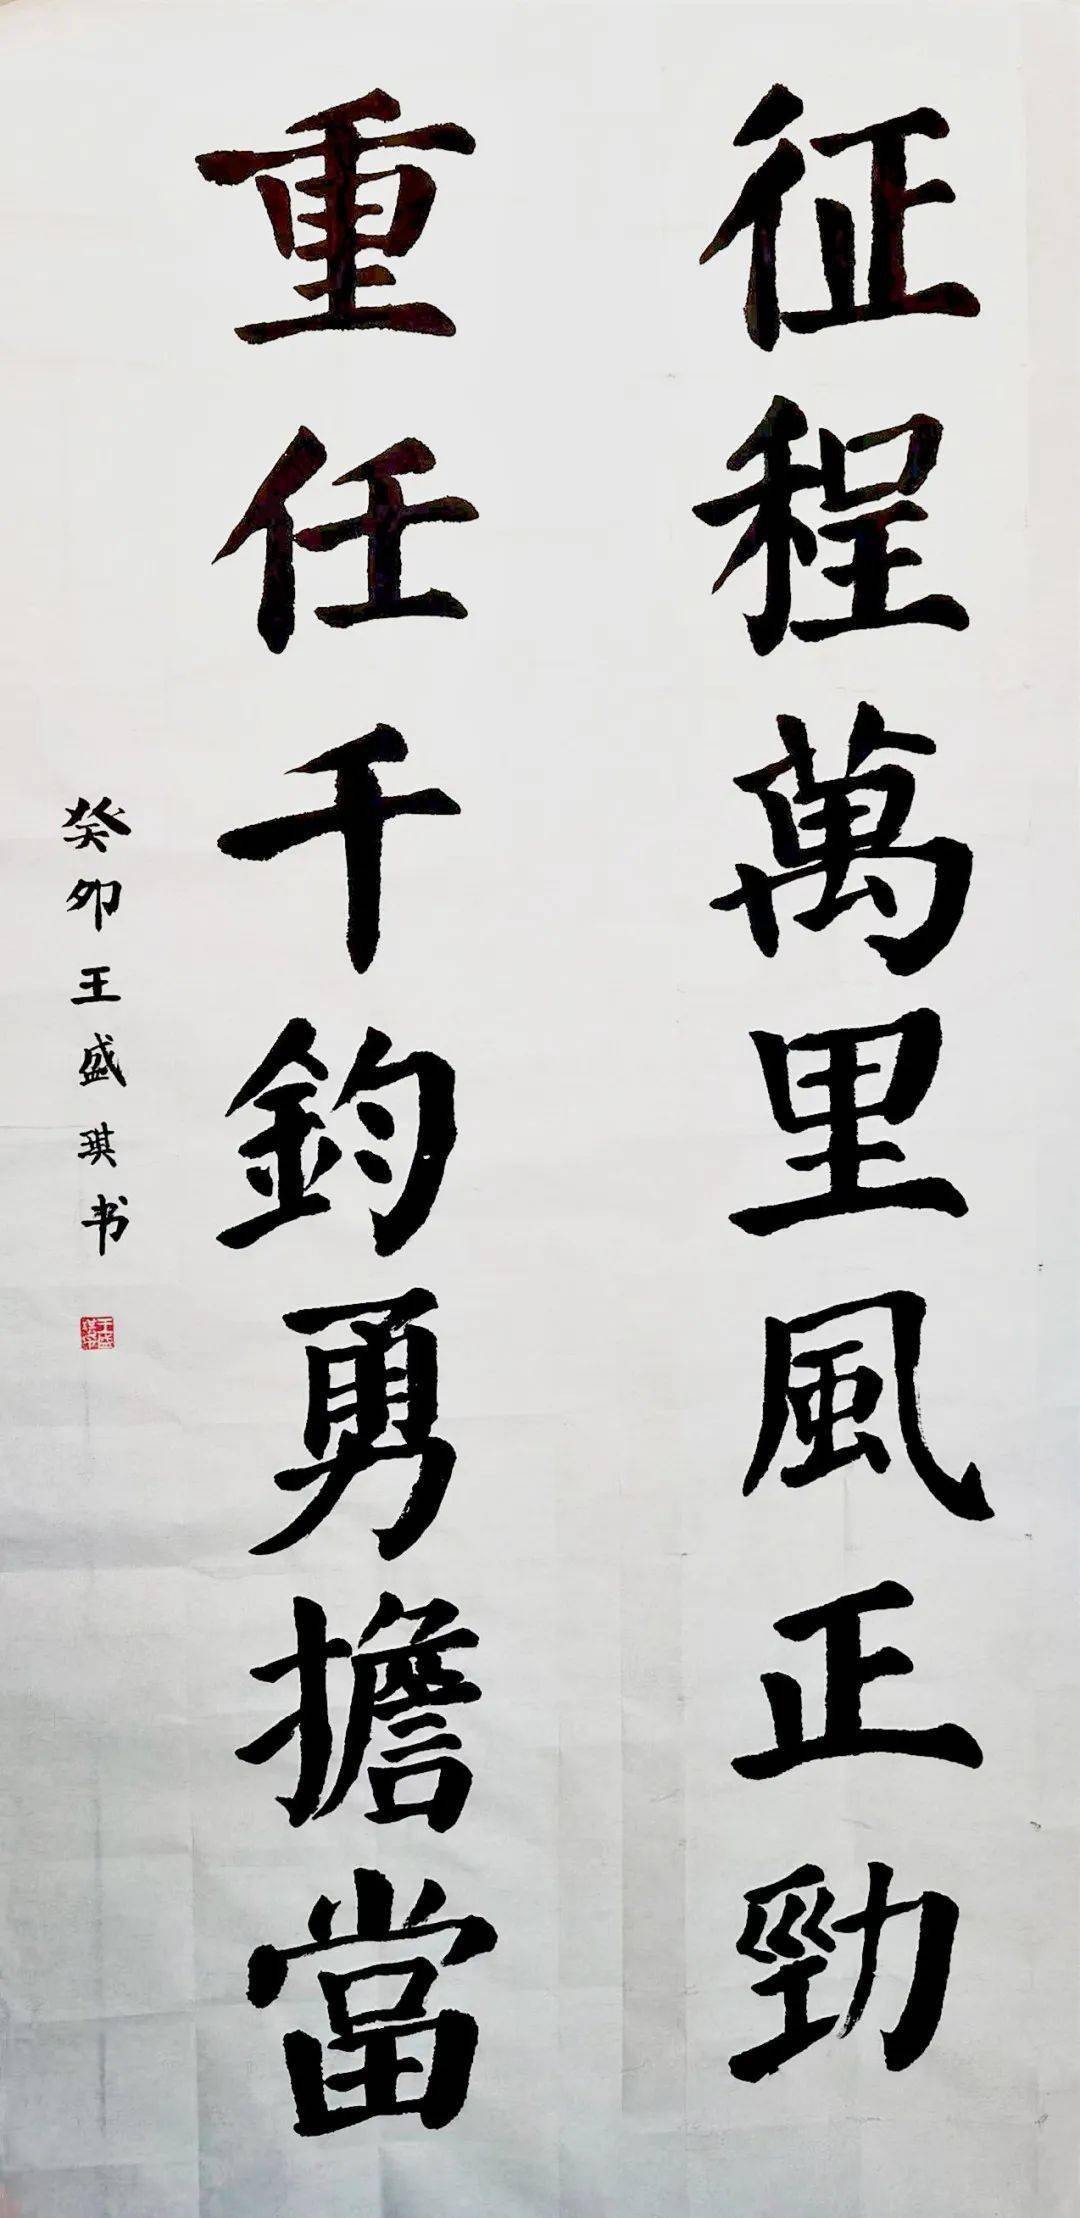 征程萬里風正勁
重任千鈞勇擔當
癸卯王盛琪书